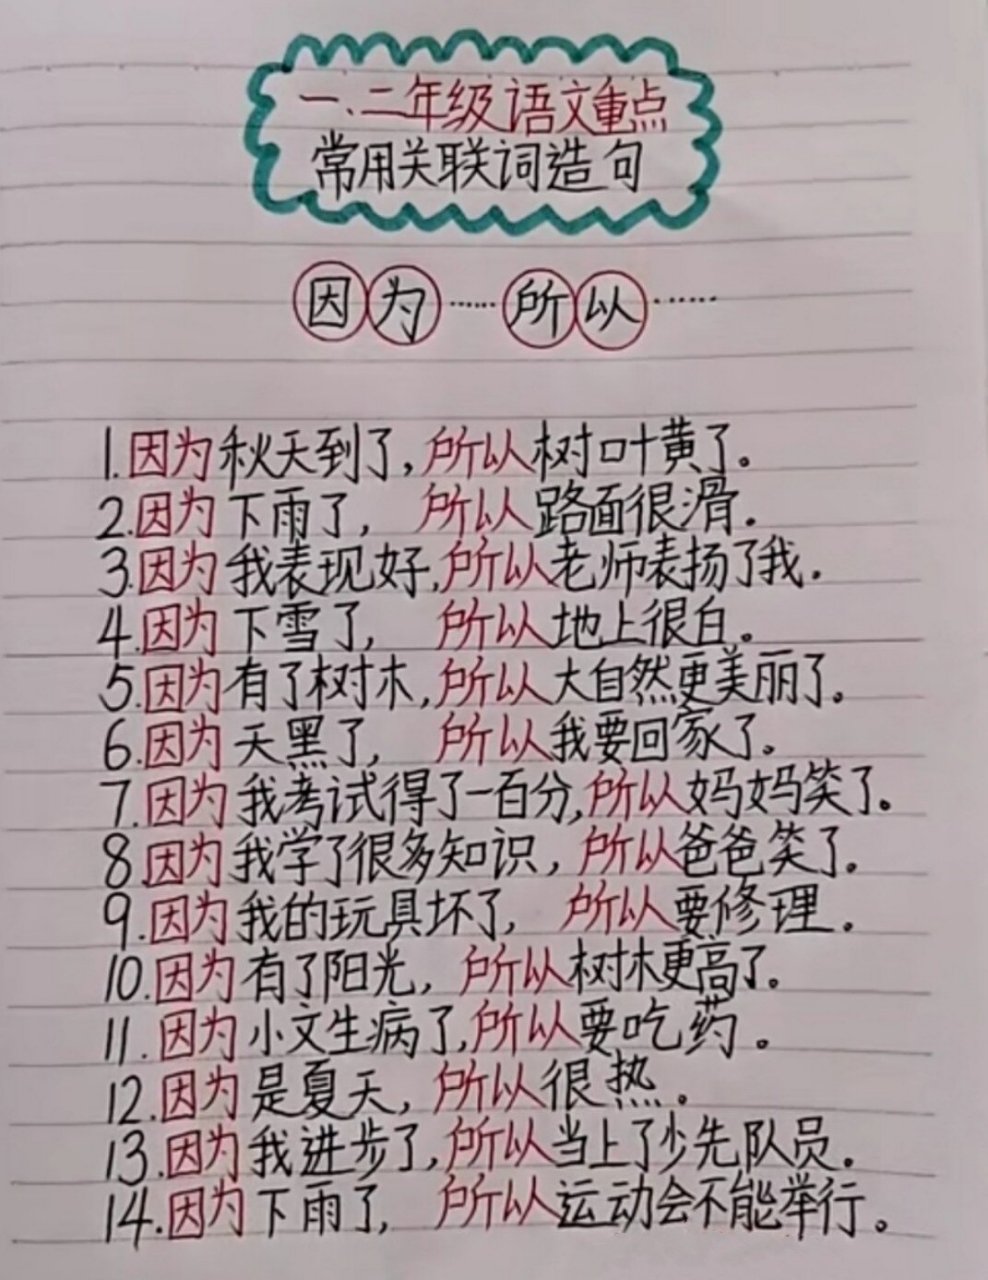 一、二年级语文重点
常用关联词造句
因为……所以……
1.因为秋天到了,所以树叶黄了。
2.因为下雨了,所以路面很滑.
3.因为我表现好,所以老师表扬了我.
4.因为下雪了,所以地上很白。
5.因为有了树木,所以大自然更美丽了。
6.因为天黑了,所以我要回家了。
7.因为我考试得了一百分,所以妈妈笑了。
8.因为我学了很多知识,所以爸爸笑了。
9.因为我的玩具坏了,所以要修理。
10.因为有了阳光,所以树木更高了。
11.因为小文生病了,所以要吃药。
12.因为是夏天,所以很热。
13.因为我进步了,所以当上了少先队员.
14.因为下雨了,所以运动会不能举行。